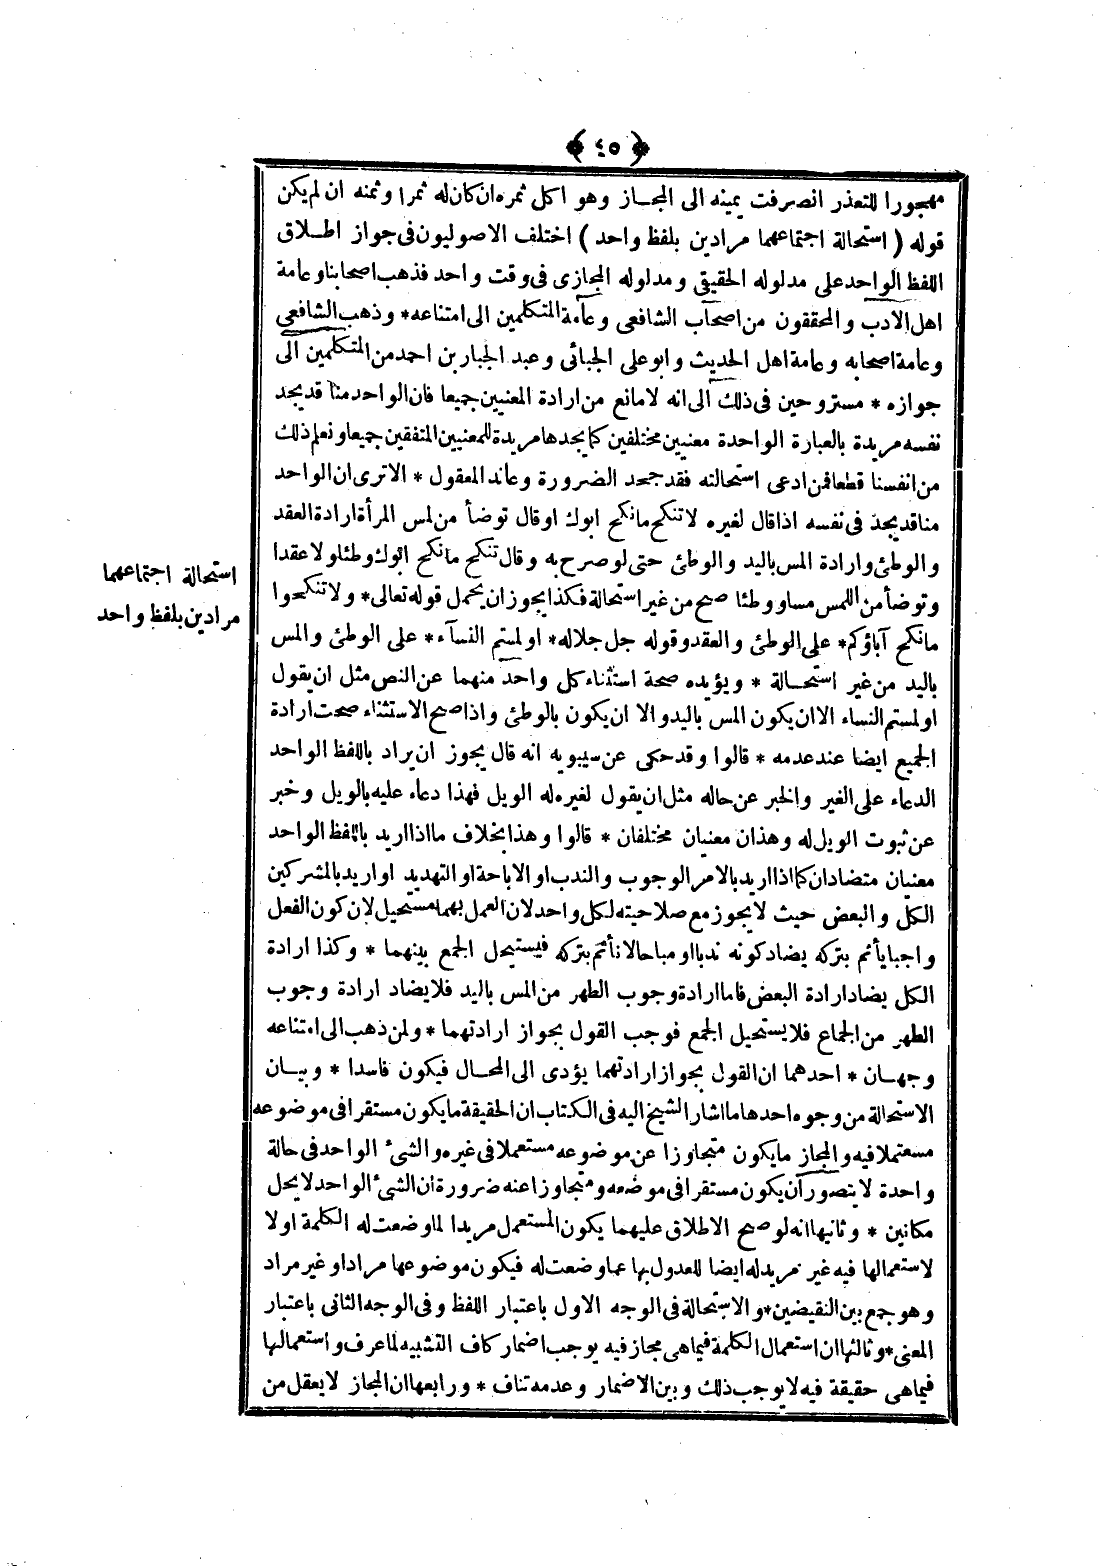 ﴿ ٤٥ ﴾
مهجورا للتعذر انصرفت يمينه الى المجاز وهو اكل ثمره ان كان له ثمرا وثمنه ان لم يكن
قوله ( استحالة اجتماعهما مرادين بلفظ واحد ) اختلف الاصوليون فى جواز اطلاق
اللفظ الواحد على مدلوله الحقيقى ومدلوله المجازى فى وقت واحد فذهب اصحابنا وعامة
اهل الادب والمحققون من اصحاب الشافعى وعامة المتكلمين الى امتناعه * وذهب الشافعى
وعامة اصحابه وعامة اهل الحديث وابو على الجبائى وعبد الجبار بن احمد من المتكلمين الى
جوازه * مستروحين فى ذلك الى انه لا مانع من ارادة المعنيين جميعا فان الواحد منا قد يجد
نفسه مريدة بالعبارة الواحدة معنيين مختلفين كما يجدها مريدة للمعنيين المتفقين جميعا ونعلم ذلك
من انفسنا قطعا فمن ادعى استحالته فقد جحد الضرورة وعاند المعقول * الا ترى ان الواحد
منا قد يجد فى نفسه اذا قال لغيره لا تنكح ما نكح ابوك او قال توضأ من لمس المرأة ارادة العقد
والوطئ وارادة المس باليد والوطئ حتى لو صرح به وقال تنكح ما نكح ابوك وطئا ولا عقدا
وتوضأ من اللمس مسا ووطئا صح من غير استحالة فكذا يجوز ان يحمل قوله تعالى * ولا تنكحوا
ما نكح آباؤكم * على الوطئ والعقد وقوله جل جلاله * او لمستم النسآء * على الوطئ والمس
باليد من غير استحالة * ويؤيده صحة استثناء كل واحد منهما عن النص مثل ان يقول
او لمستم النساء الا ان يكون المس باليد والا ان يكون بالوطئ واذا صح الاستثناء صحت ارادة
الجميع ايضا عند عدمه * قالوا وقد حكى عن سيبويه انه قال يجوز ان يراد باللفظ الواحد
الدعاء على الغير والخبر عن حاله مثل ان يقول لغيره له الويل فهذا دعاء عليه بالويل وخبر
عن ثبوت الويل له وهذان معنيان مختلفان * قالوا وهذا بخلاف ما اذا اريد باللفظ الواحد
معنيان متضادان كما اذا اريد بالامر الوجوب والندب او الاباحة او التهديد او اريد بالمشركين
الكل والبعض حيث لا يجوز مع صلاحيته لكل واحد لان العمل بهما مستحيل لان كون الفعل
واجبا يأثم بتركه يضاد كونه ندبا او مباحا لا نأثم بتركه فيستحيل الجمع بينهما * وكذا ارادة
الكل يضاد ارادة البعض فاما ارادة وجوب الطهر من المس باليد فلا يضاد ارادة وجوب
الطهر من الجماع فلا يستحيل الجمع فوجب القول بجواز ارادتهما * ولمن ذهب الى امتناعه
وجهان * احدهما ان القول بجواز ارادتهما يؤدى الى المحال فيكون فاسدا * وبيان
الاستحالة من وجوه احدها ما اشار الشيخ اليه فى الكتاب ان الحقيقة ما يكون مستقرا فى موضوعه
مستعملا فيه والمجاز ما يكون متجاوزا عن موضوعه مستعملا فى غيره والشئ الواحد فى حالة
واحدة لا يتصور ان يكون مستقرا فى موضعه ومتجاوزا عنه ضرورة ان الشئ الواحد لا يحل
مكانين * وثانيها انه لو صح الاطلاق عليهما يكون المستعمل مريدا لما وضعت له الكلمة اولا
لاستعمالها فيه غير مريد له ايضا للعدول بها عما وضعت له فيكون موضوعها مرادا وغير مراد
وهو جمع بين النقيضين * والاستحالة فى الوجه الاول باعتبار اللفظ وفى الوجه الثانى باعتبار
المعنى * وثالثها ان استعمال الكلمة فيما هى مجاز فيه يوجب اضمار كاف التشبيه لما عرف واستعمالها
فيما هى حقيقة فيه لا يوجب ذلك وبين الاضمار وعدمه تناف * ورابعها ان المجاز لا يعقل من
استحالة اجتماعهما
مرادين بلفظ واحد